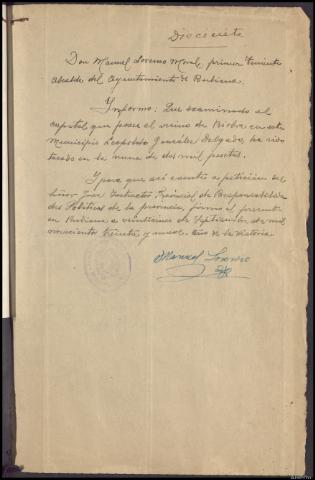 Diecisiete
Don Manuel Lorenzo Moral, primer teniente
alcalde del Ayuntamiento de Rubiana.
Informo: Que examinado el
capital que posee el vecino de Biobra en este
Municipio Leopoldo González Delgado, ha sido
tasado en la suma de dos mil pesetas.
Y para que así conste a petición del
Señor Juez Instructor Provincial de Responsabilida
des Políticas de la provincia, firmo el presente
en Rubiana a veinticinco de Septiembre de mil
novecientos treinta y nueve. Año de la Victoria
Manuel Lorenzo